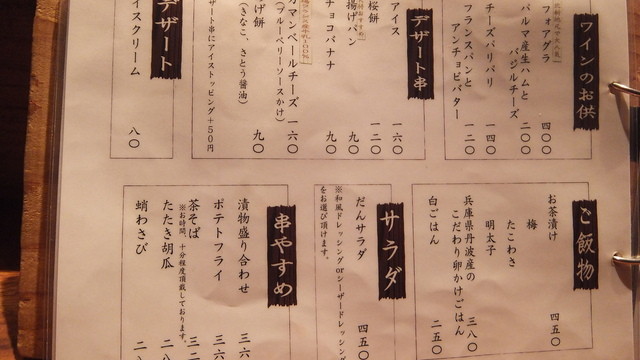 ワインのお供
フォアグラ 四〇〇
パルマ産生ハムと
バジルチーズ 二〇〇
チーズパリパリ 一四〇
フランスパンと
アンチョビバター 一二〇
デザート串
アイス 一六〇
桜餅 一二〇
揚げパン 九〇
チョコバナナ 九〇
カマンベールチーズ 一六〇
(ブルーベリーソースかけ)
げ餅 九〇
(きなこ、さとう醤油)
デザート串にアイストッピング+50円
デザート
イスクリーム 八〇
ご飯物
お茶漬け 四五〇
梅
たこわさ
明太子
兵庫県丹波産の
こだわり卵かけごはん 三八〇
白ごはん 二五〇
サラダ
だんサラダ 四五〇
※和風ドレッシングorシーザードレッシング
をお選び頂けます。
串やすめ
漬物盛り合わせ 三六
ポテトフライ 三六
茶そば 三二
※お時間、十分程度頂戴しております。
たたき胡瓜 二八
蛸わさび 二